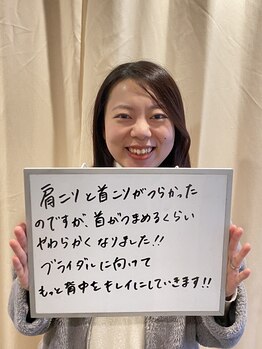 肩こりと首こりがつらかった
のですが、首がつまめるくらい
やわらかくなりました!!
ブライダルに向けて
もっと背中をキレイにしていきます!!